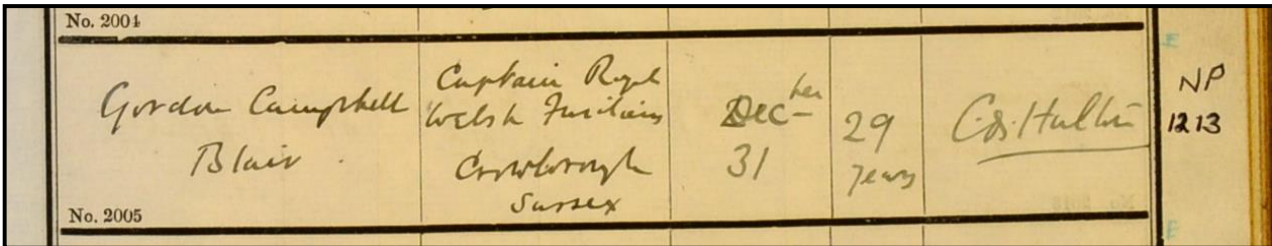 No. 2004
Gordon Campbell
Blair
Captain Royal
Welsh Fusiliers
Crowborough
Sussex
Decber
31
29
years
NP
1213
No. 2005